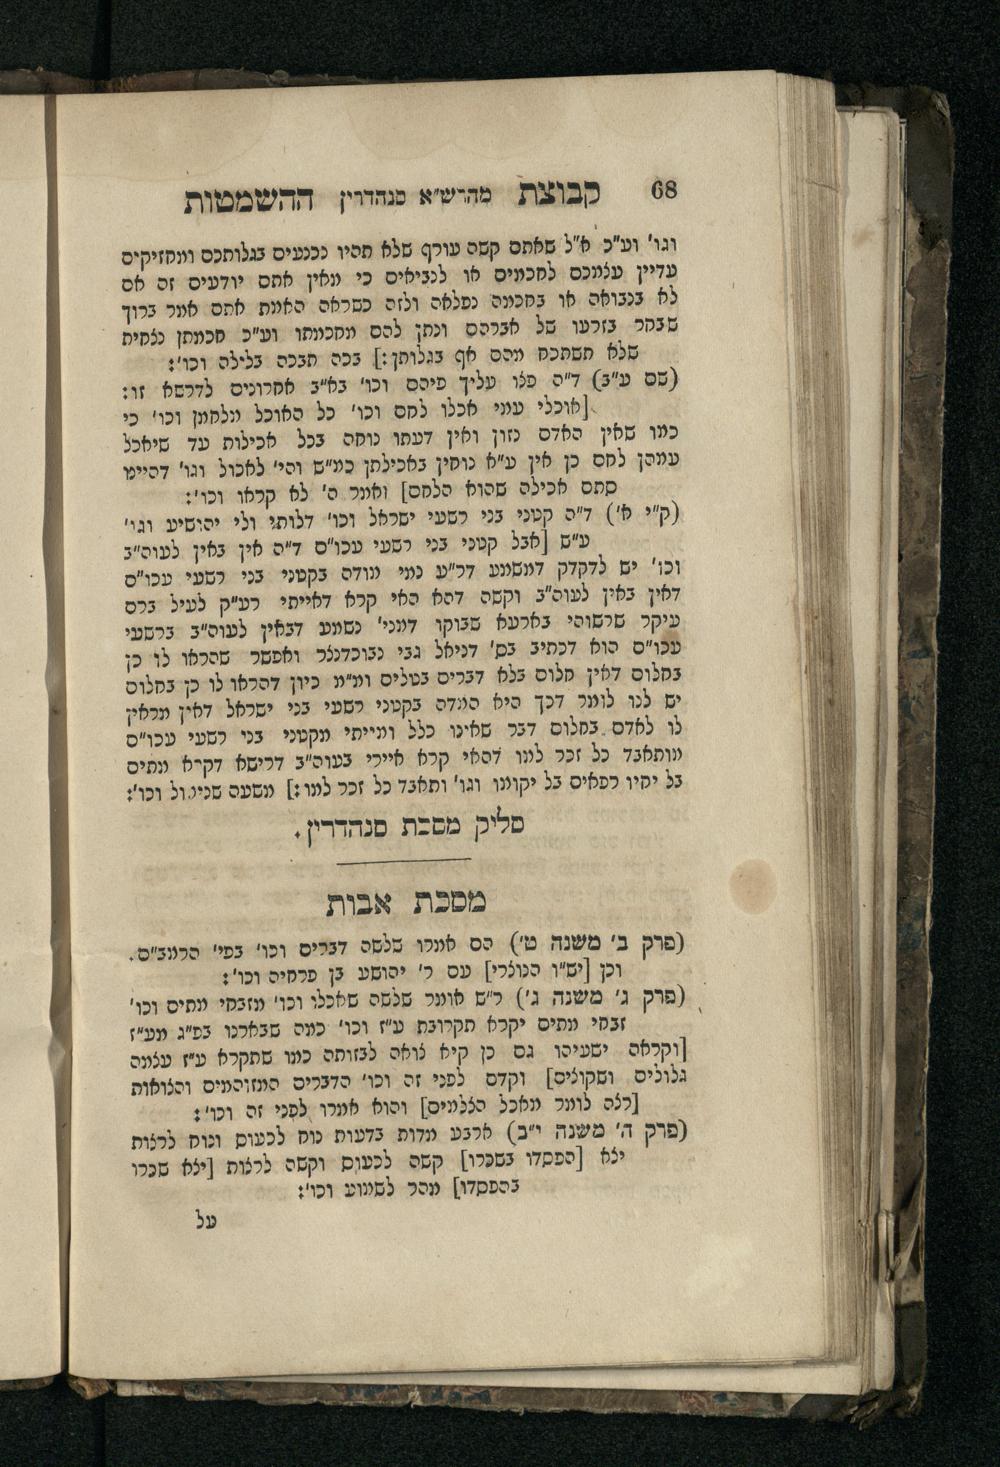 68 קבוצת מהרש״א סנהדרין ההשמטות
וגו' וע״כ א״ל שאתם קשה עורף שלא תהיו נכנעים בגלותכם ומחזיקים
עדיין עצמכם לחכמים או לנביאים כי מאין אתם יודעים זה אם
לא בנבואה או בחכמה נפלאה ולזה כשראה האמת אתם אמר ברוך
שבחר בזרעו של אברהם ונתן להם מחכמתו וע״כ חכמתן נצחית
שלא תשתכח מהם אף בגלותן:] בכה תבכה בלילה וכו':
(שם ע״ב) ד״ה פצו עליך פיהם וכו' בא״ב אחרונים לדרשא זו:
[אוכלי עמי אכלו לחם וכו' כל האוכל מלחמן וכו' כי
כמו שאין האדם נזון ואין דעתו נוחה בכל אכילות עד שיאכל
עמהן לחם כן אין ע״א נוחין באכילתן כמ״ש והי' לאכול וגו' דהיינו
סתם אכילה שהוא הלחם] ואמר ה' לא קראו וכו':
(ק״י א') ד״ה קטני בני רשעי ישראל וכו' דלותי ולי יהושיע וגו'
ע״ש [אבל קטני בני רשעי עכו״ם ד״ה אין באין לעוה״ב
וכו' יש לדקדק דמשמע דר״ע נמי מודה בקטני בני רשעי עכו״ם
דאין באין לעוה״ב וקשה דהא האי קרא דאייתי רע״ק לעיל ברם
עיקר שרשוהי בארעא שבוקו דמני' נשמע דבאין לעוה״ב ברשעי
עכו״ם הוא דכתיב בס' דניאל גבי נבוכדנצר ואפשר שהראו לו כן
בחלום דאין חלום בלא דברים בטלים ומ״מ כיון דהראו לו כן בחלום
יש לנו לומר דכך היא המדה בקטני רשעי בני ישראל דאין מראין
לו לאדם בחלום דבר שאינו כלל ומייתי מקטני בני רשעי עכו״ם
מותאבד כל זכר למו דהאי קרא איירי בעוה״ב דרישא דקרא מתים
בל יחיו רפאים בל יקומו וגו' ותאבד כל זכר למו:] משעה שנימול וכו':
סליק מסכת סנהדרין.
מסכת אבות
(פרק ב' משנה ט') הם אמרו שלשה דברים וכו' בפי' הרמב״ם.
וכן [יש״ו הנוצרי] עם ר' יהושע בן פרחיה וכו':
(פרק ג' משנה ג') ר״ש אומר שלשה שאכלו וכו' מזבחי מתים וכו'
זבחי מתים יקרא תקרובת ע״ז וכו' כמה שבארנו בפ״ג מע״ז
[וקראה ישעיהו גם כן קיא צואה לבזותה כמו שתקרא ע״ז עצמה
גלולים ושקוצים] וקדם לפני זה וכו' הדברים המזוהמים והצואות
[רצה לומר מאכל הצלמים] והוא אמרו לפני זה וכו':
(פרק ה' משנה י״ב) ארבע מדות בדעות נוח לכעוס ונוח לרצות
יצא [הפסדו בשכרו] קשה לכעוס וקשה לרצות [יצא שכרו
בהפסדו] מהר לשמוע וכו':
על